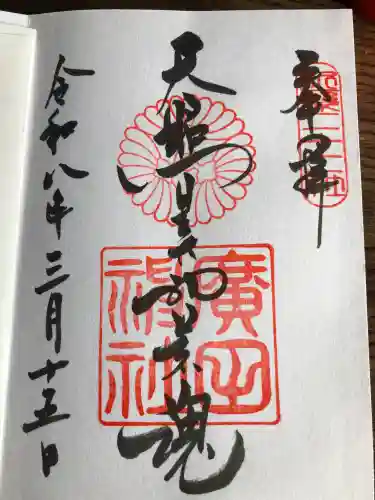 奉拝
天照皇大神荒魂
廣田
神社
令和八年三月十五日